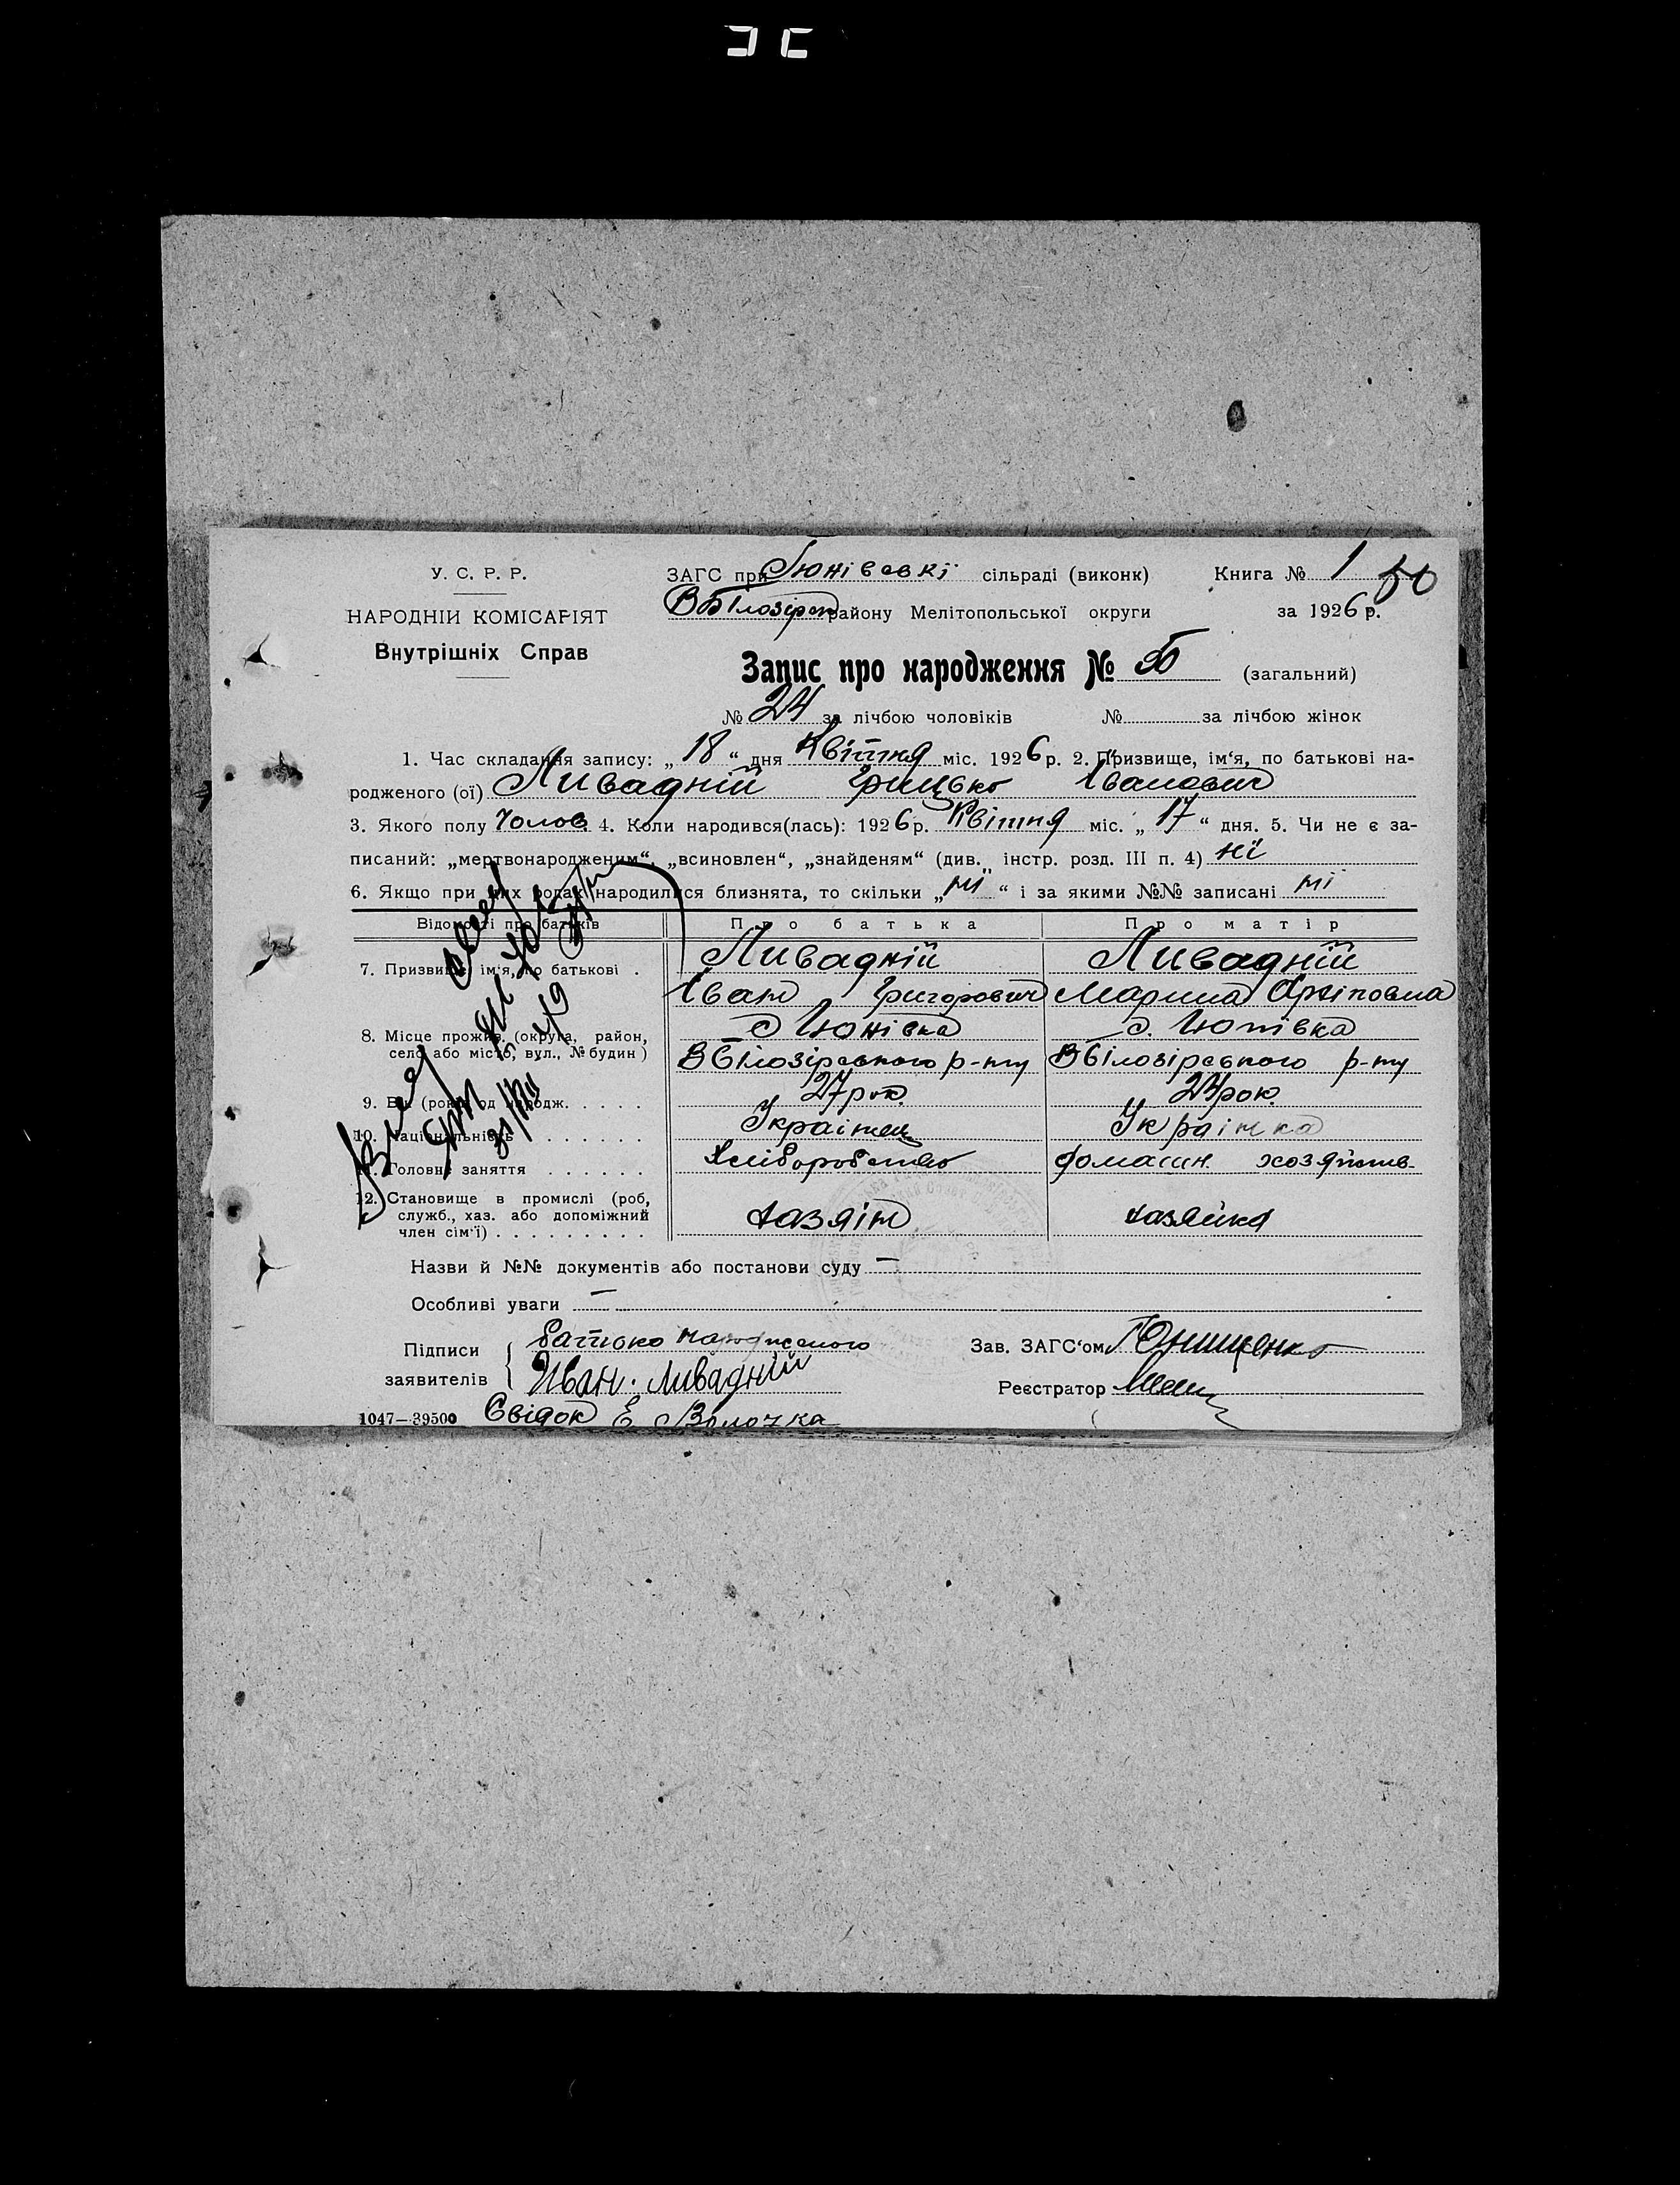 У. С. Р. Р.
НАРОДНІЙ КОМІСАРІЯТ
Внутрішніх Справ
ЗАГС при сільраді (виконк) Книга № 1 50
ВБілозірск району Мелітопольської округи за 1926 р.
Запис про народження № 50 (загальний)
№ 24 за лічбою чоловіків № за лічбою жінок
1. Час складання запису: „ 18 “ дня Квітня міс. 1926 р. 2. Призвище, ім‘я, по батькові на-
родженого (ої) Ливадній Грицько Іванович
3. Якого полу Чолов. 4. Коли народився(лась): 1926 р. Квітня міс. „ 17 “ дня. 5. Чи не є за-
писаний: „мертвонародженим“, „всиновлен“, „знайденям“ (див. інстр. розд. III п. 4) ні
6. Якщо при цих родах народилися близнята, то скільки „ ні “ і за якими №№ записані ні
Відомості про батьків Про батька Про матір
7. Призвище, ім‘я, по батькові . Ливадній Ливадній
Іван Григорович Марина Архіповна
8. Місце прожив. (округа, район, с. Юнівка
село або місто, вул., № будин) ВБілозірського р-ну ВБілозірського р-ну
9. Вік (років од народж. . . . . . 27 рок. 24 рок.
10. Національність . . . . . . . Українец Українка
11. Головне заняття . . . . . . Хліборобство домашн. хозяйств.
12. Становище в промислі (роб,
служб., хаз. або допоміжний хазяін хазяйка
член сім‘ї) . . . . . . . . .
Назви й №№ документів або постанови суду —
Особливі уваги —
Підписи батько народженого Зав. ЗАГС‘ом Онищенко
заявителів Иван. Ливадній Реєстратор
1047—39500 Свідок Е Волочка